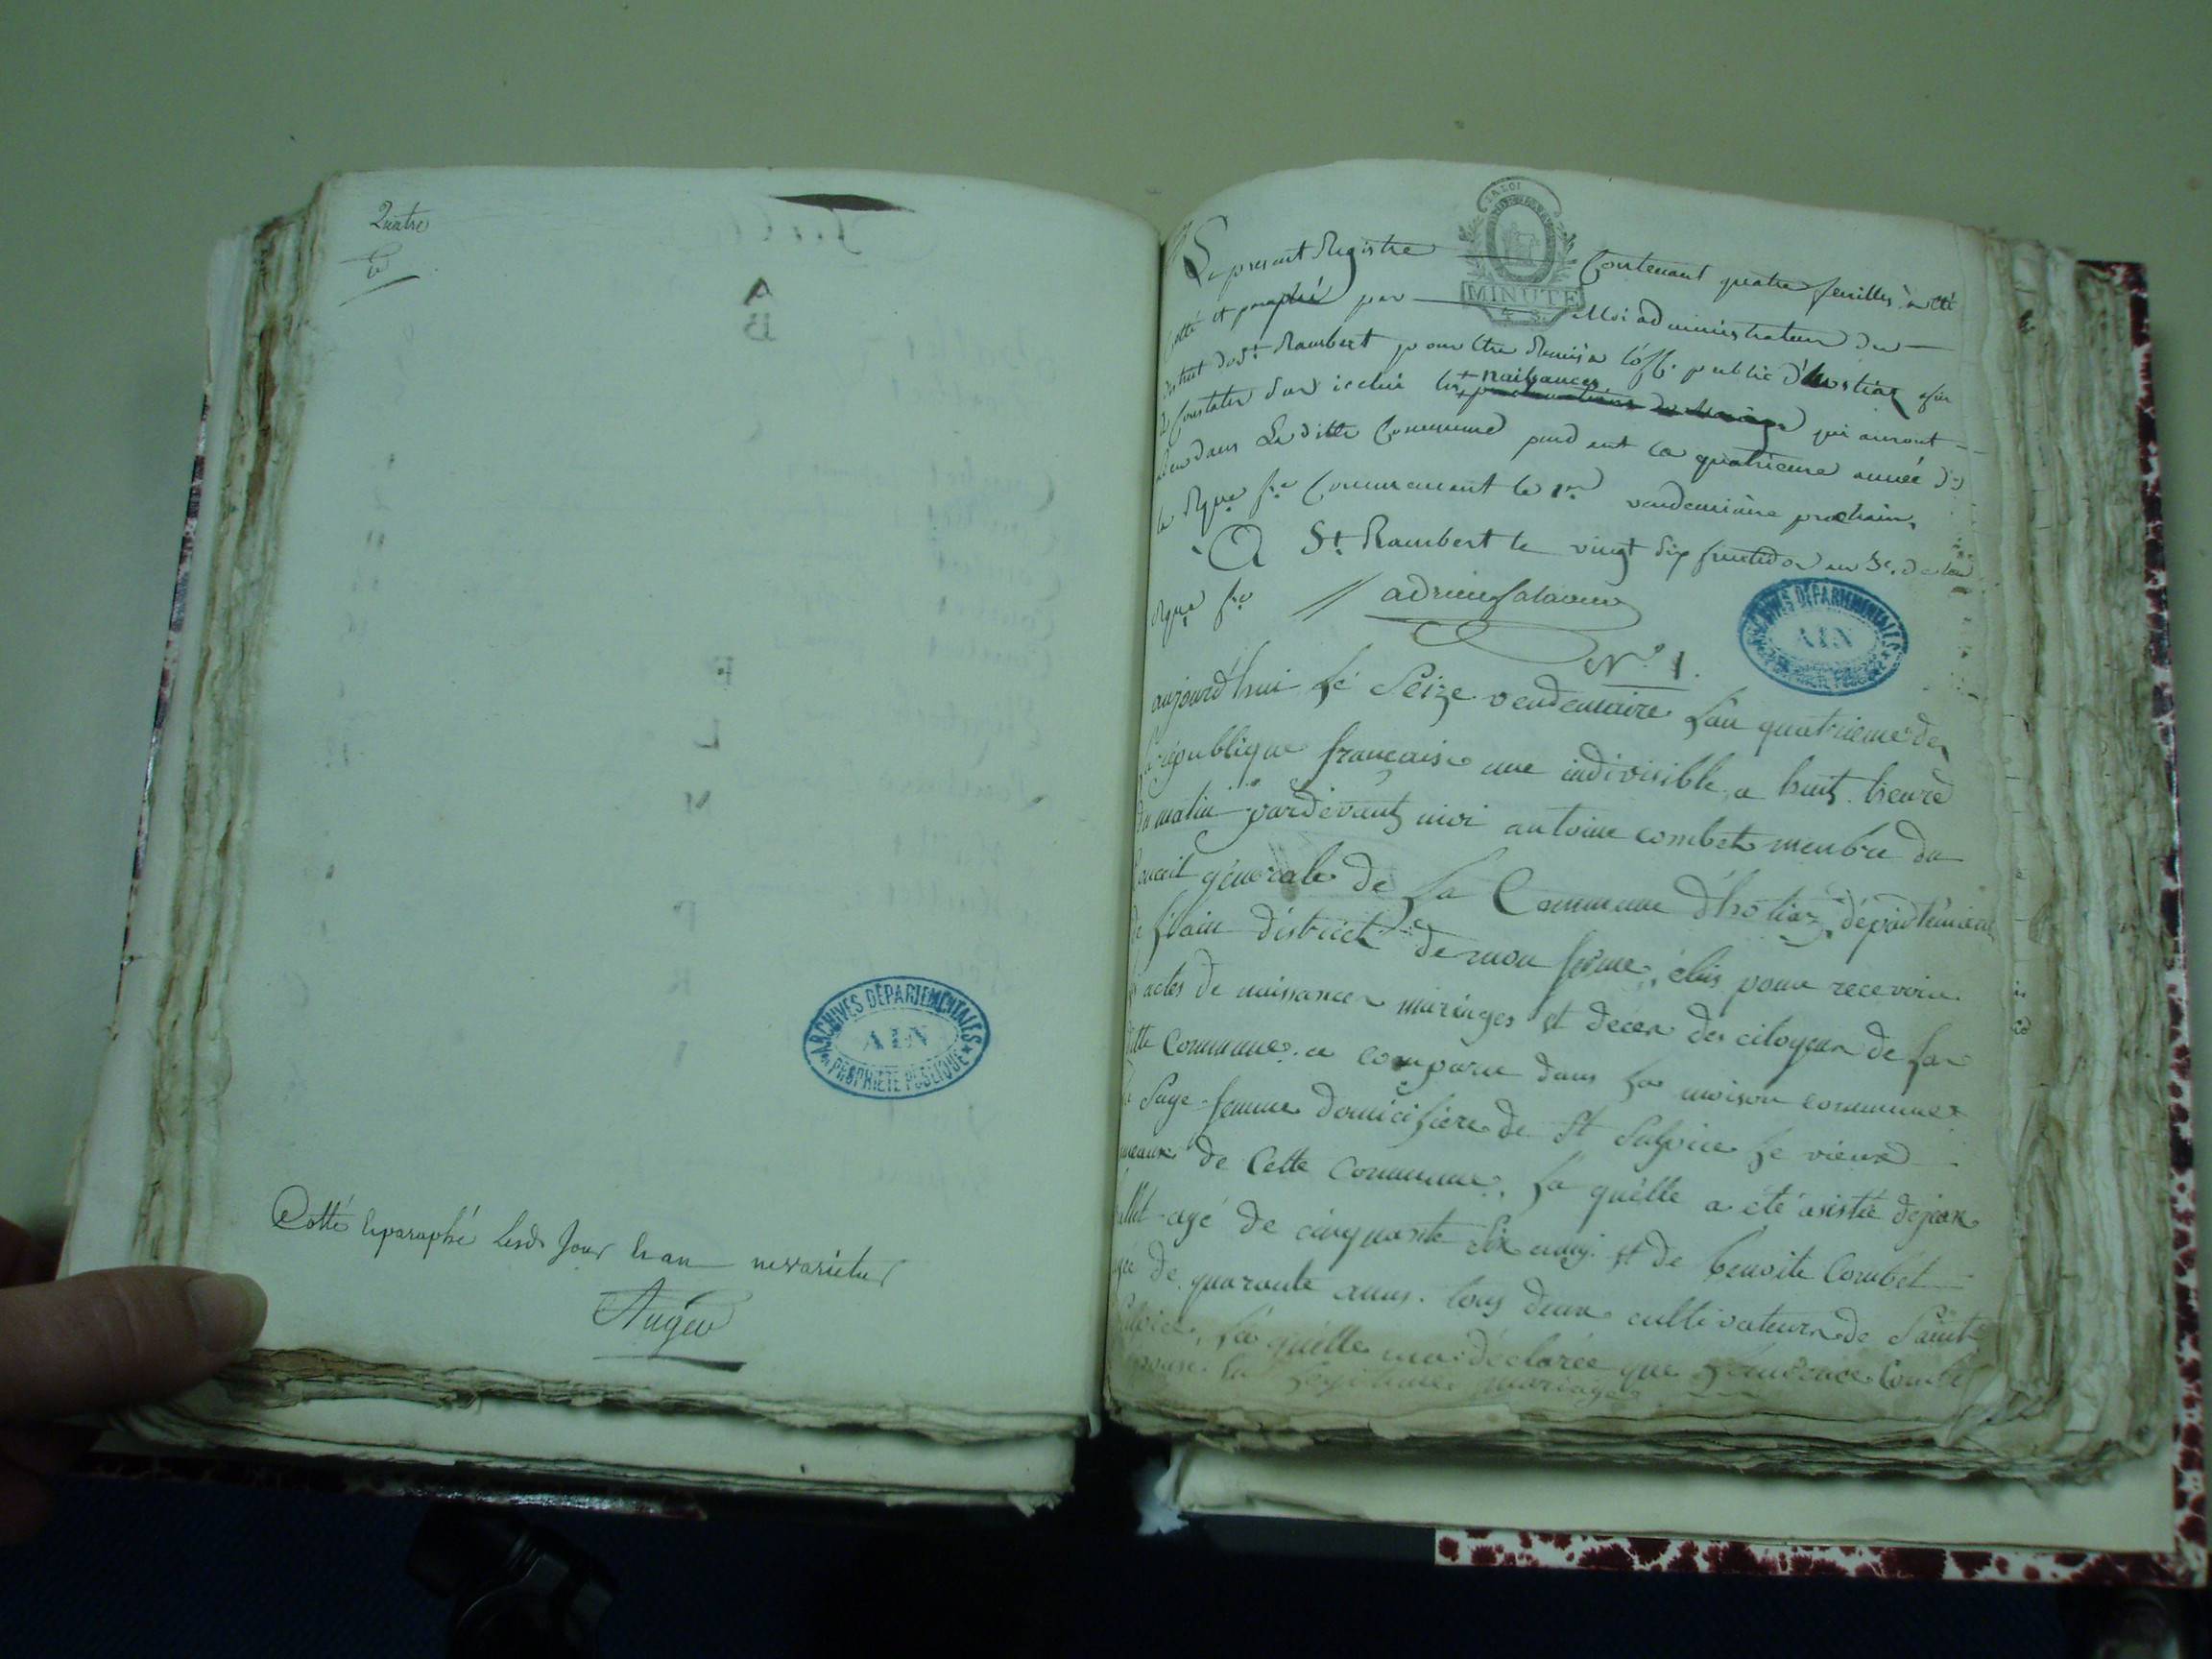 Quatre
Cotté et paraphé lesd. Jour et an ne varietur
Auger
ARCHIVES DÉPARTEMENTALES
AIN
PROPRIÉTÉ PUBLIQUE
LA LOI
MINUTE
Le present Registre Contenant quatre feuilles à été
Cotté et paraphé par Moi administrateur du
district de St Rambert pour être Remis à l'off. public d'hostiaz afin
de Constater sur icelui les naissances qui auront
lieu dans La ditte Commune pend ent la quatrieme année de
la Rque fse Commencant le 1er vendemiaire prochain,
A St Rambert le vingt six fructidor an 3e. de la
Rque fse
ARCHIVES DÉPARTEMENTALES
AIN
PROPRIÉTÉ PUBLIQUE
N.º 1.
aujourd'hui le Seize vendemiaire l'an quatrieme de
la république francaise une indivisible a huit heure
du matin pardevant moi antoine combet membre du
Conceil générale de la Commune d'hôtiaz, département
de l'ain district de mon ferme, élus pour recevoir
les actes de naissance mariages et decer des citoyen de la
ditte Commune. a comparu dans la maison commune
la Sage-femme domicilière de St Sulpice le vieux
hameaux de Cette Commune, la quélle a été asistée de jean
agé de cinquante Six et de benoite Combet
agé de quaranté anns. tous deux cultivateur de Saint
Sulpice, la quélle ma déclarée que
épouse en légitime mariage